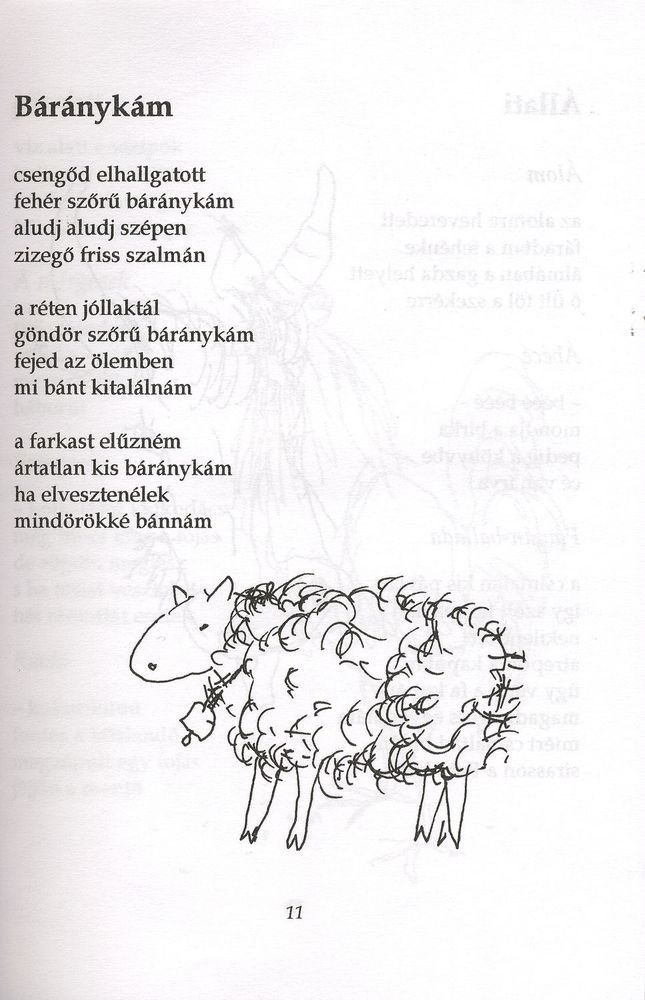 Báránykám
csengőd elhallgatott
fehér szőrű báránykám
aludj aludj szépen
zizegő friss szalmán
a réten jóllaktál
göndör szőrű báránykám
fejed az ölemben
mi bánt kitalálnám
a farkast elűzném
ártatlan kis báránykám
ha elvesztenélek
mindörökké bánnám
11